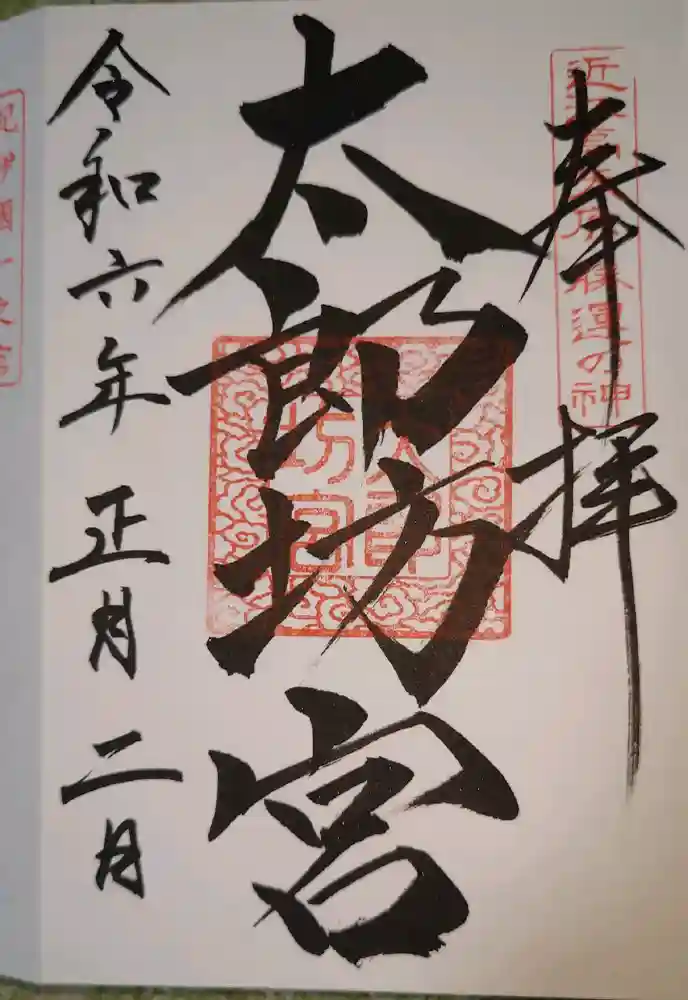 奉拝
近江高天原勝運の神
太郎坊宮
太郎
坊宮
令和六年正月二月
紀伊國一之宮